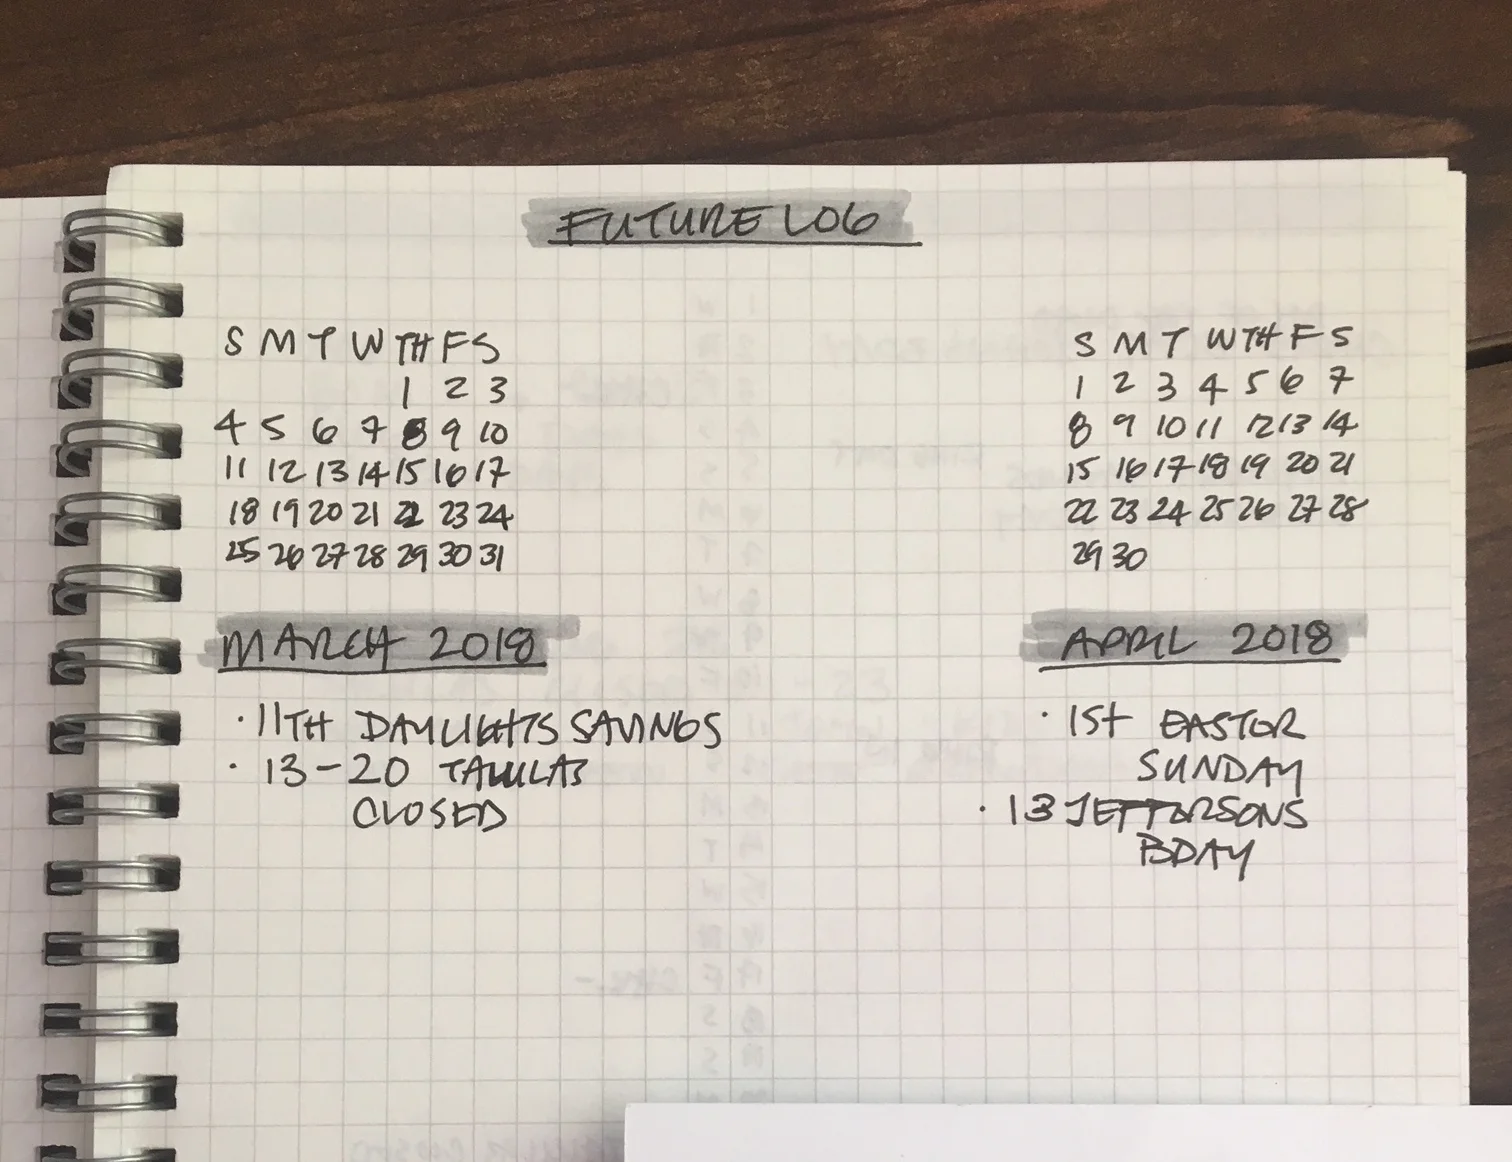 FUTURE LOG
S M T W TH F S
1 2 3
4 5 6 7 8 9 10
11 12 13 14 15 16 17
18 19 20 21 22 23 24
25 26 27 28 29 30 31
MARCH 2018
· 11TH DAYLIGHTS SAVINGS
· 13-20 TALULAS
CLOSED
S M T W TH F S
1 2 3 4 5 6 7
8 9 10 11 12 13 14
15 16 17 18 19 20 21
22 23 24 25 26 27 28
29 30
APRIL 2018
· 1ST EASTOR
SUNDAY
· 13 JEFFERSONS
BDAY